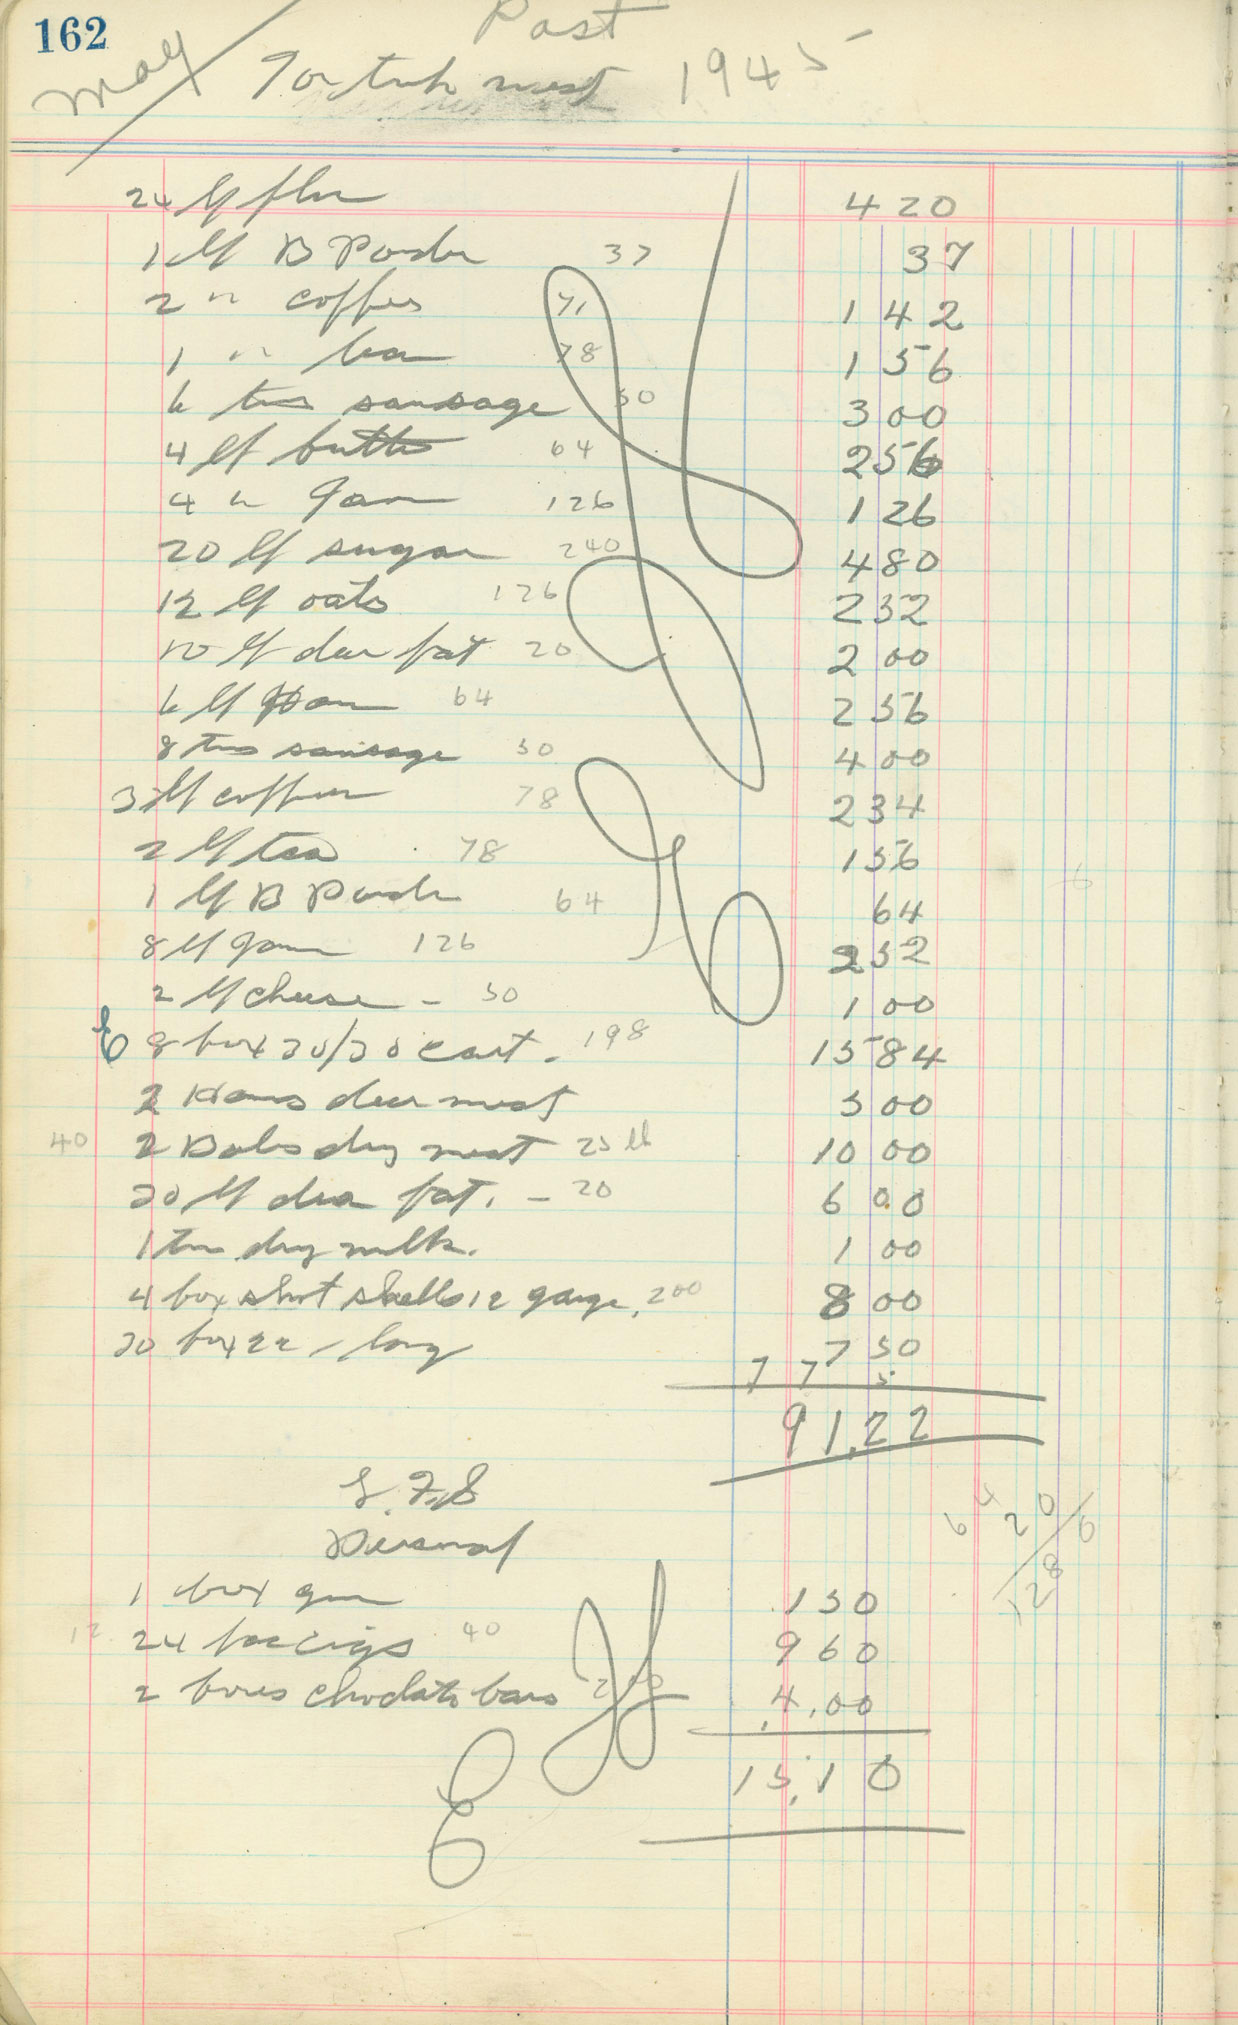 162
Post
May
1945
24 lb flour 420
1 lb B Powder 37 37
2 " coffee 71 142
1 " tea 78 156
6 tins sausage 50 300
4 lb butter 64 256
4 " Jam 126 126
20 lb sugar 240 480
12 lb oats 126 232
10 lb deer fat 20 200
6 lb 64 256
8 tins sausage 50 400
3 lb coffee 78 234
2 lb tea 78 156
1 lb B Powder 64 64
8 lb Jam 126 252
2 lb cheese - 50 100
8 box 30/30 cart. - 198 1584
2 Hams deer meat 500
40 2 Bales dry meat 25 lb 1000
30 lb deer fat. - 20 600
1 tin dry milk. 100
4 box shot shells 12 gauge, 200 800
30 box 22 long 750
7 7 5
91.22
64 20/6
128
Personal
1 box gum 150
12 24 cigs 40 960
2 boxes chocolate bars 200 4.00
15.10